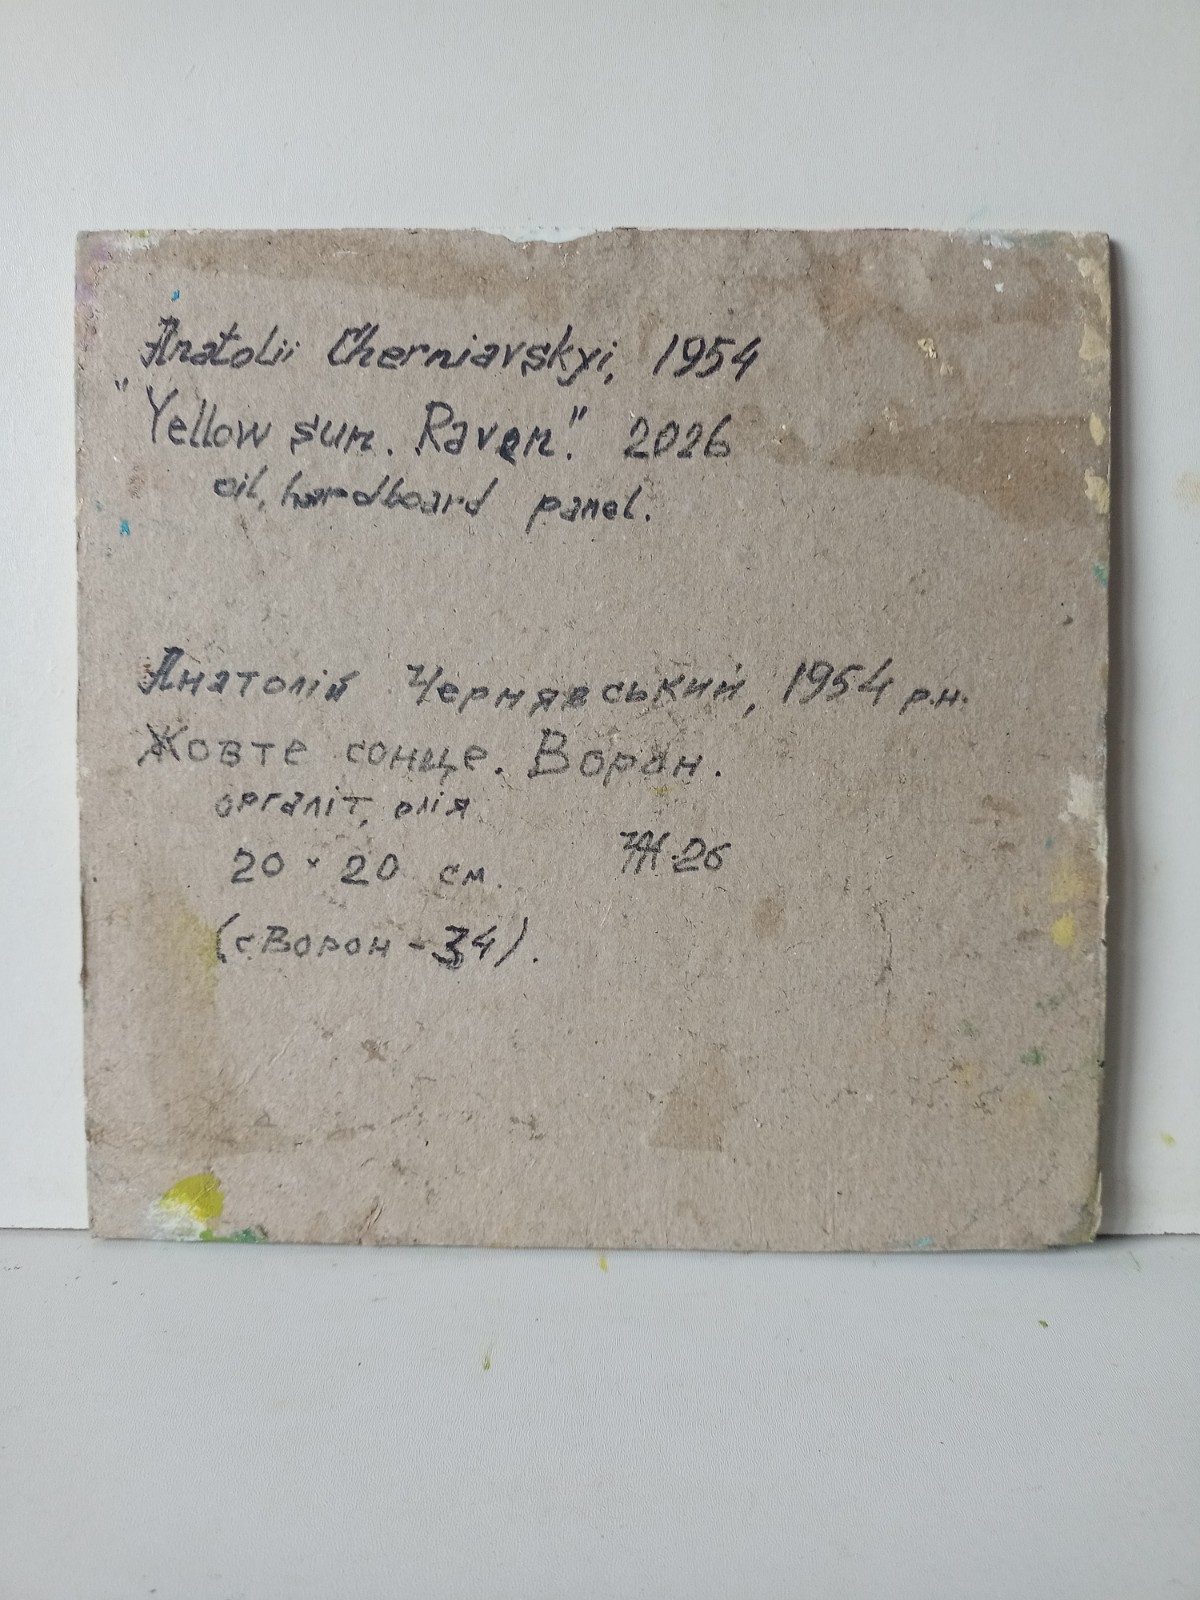 Anatolii Cherniavskyi, 1954
"Yellow sun. Raven." 2026
oil, hardboard panel.
Анатолій Чернявський, 1954 р.н.
Жовте сонце. Ворон.
оргаліт, олія
20 × 20 см. 26
(с Ворон - 34).